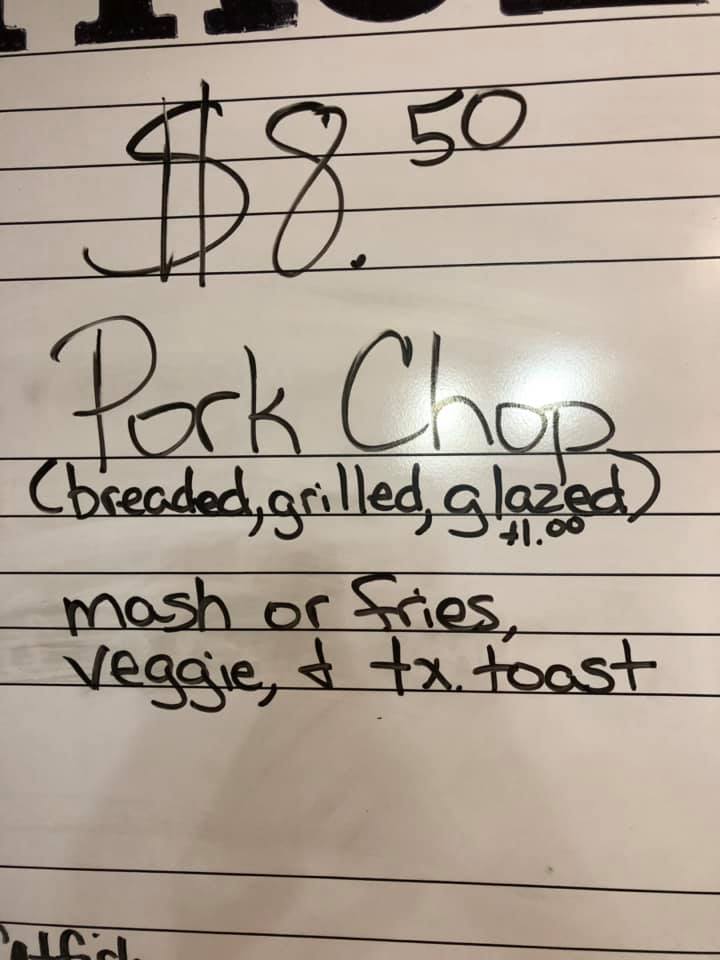 $8.50
Pork Chop
(breaded, grilled, glazed)
+1.00
mash or fries,
veggie, & tx. toast